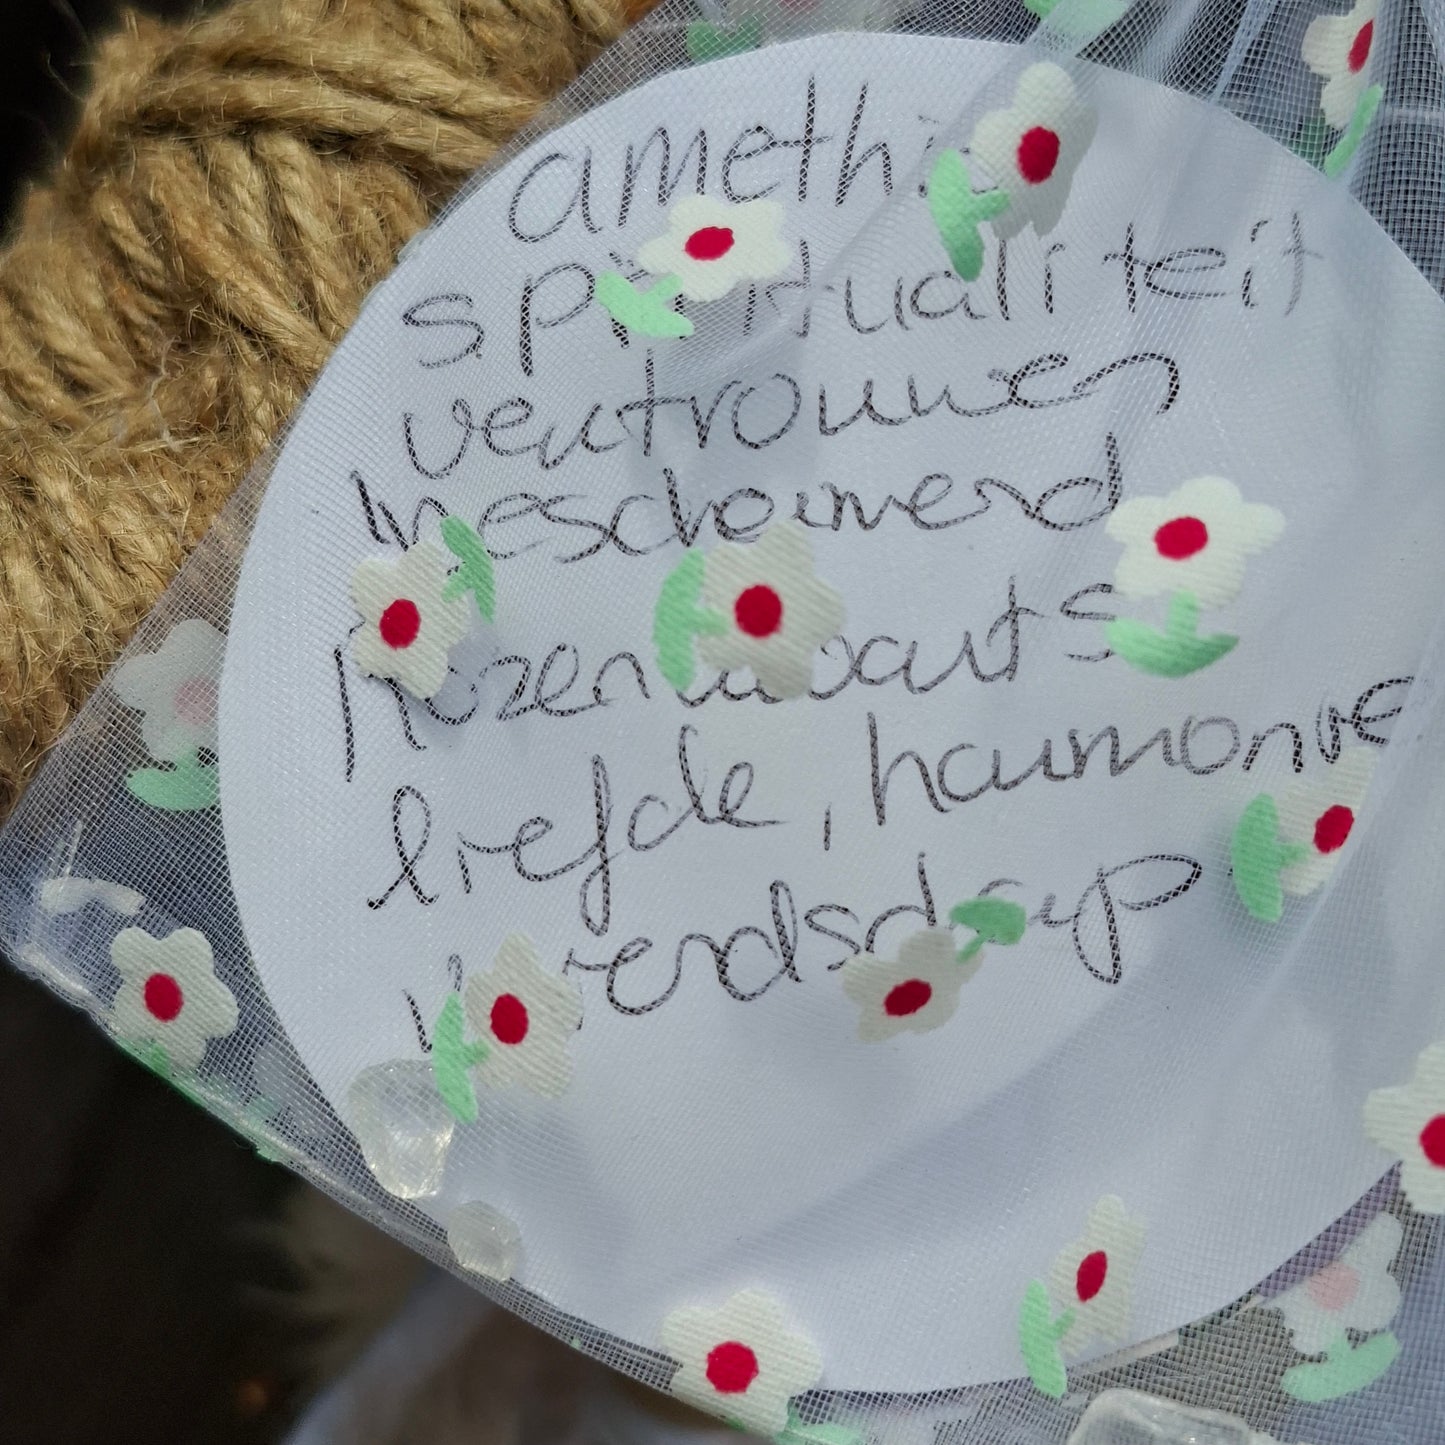 amethi
spiritualiteit
vertrouwen
beschermend
rozenkwarts
liefde, harmonie
vriendschap